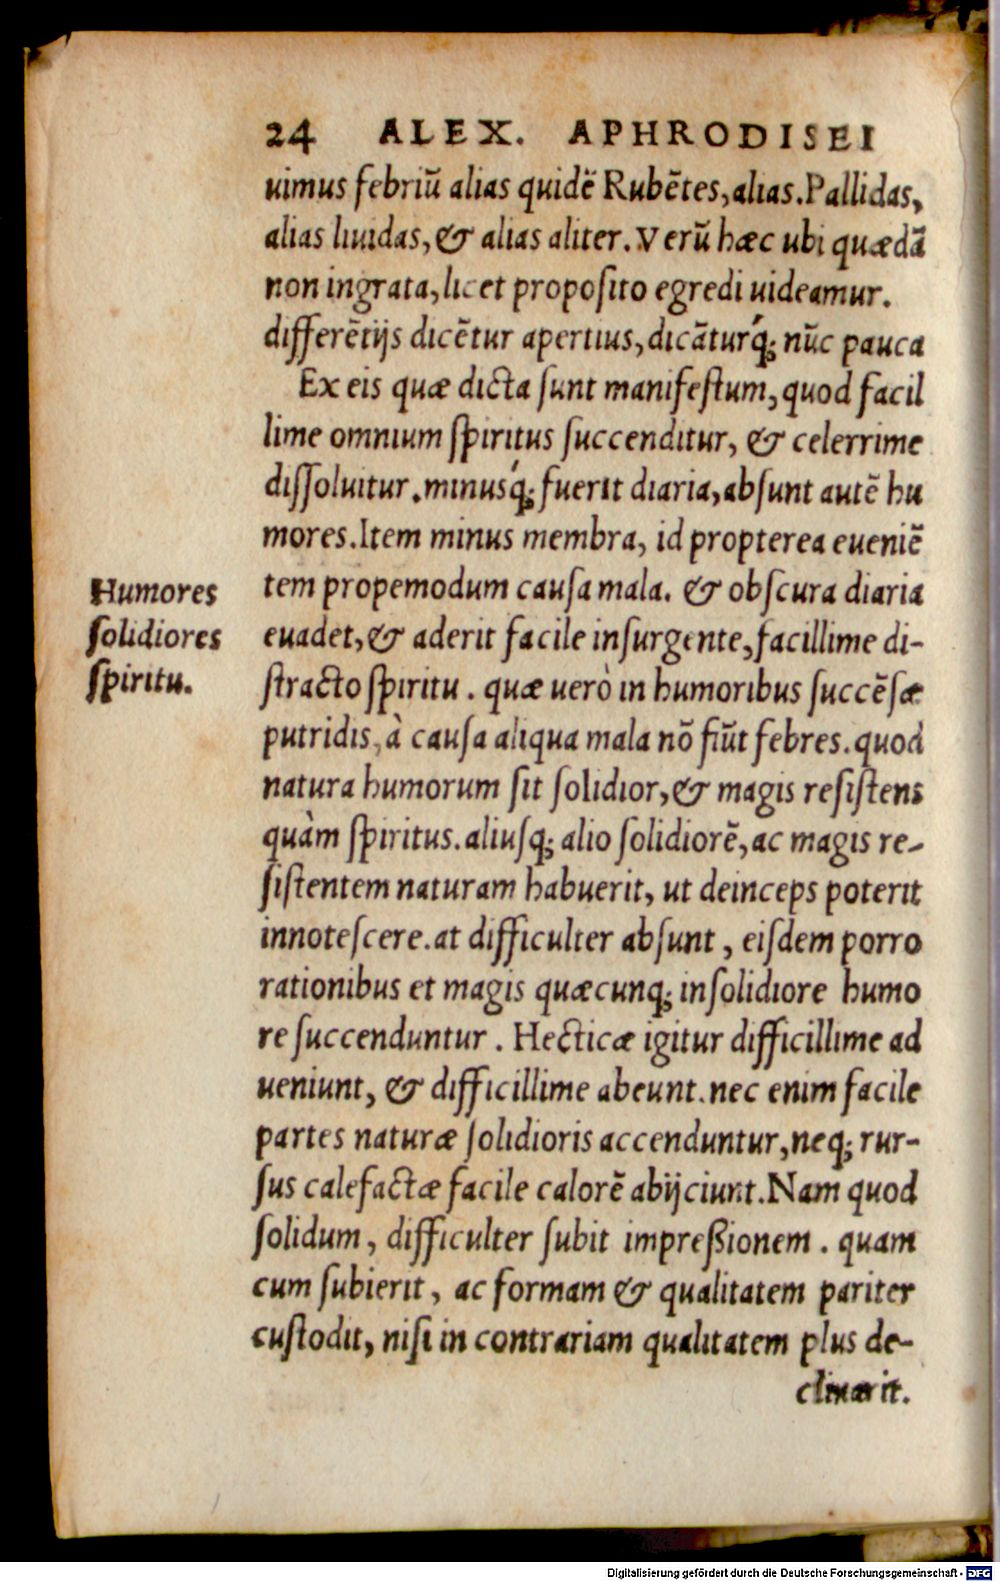 24 ALEX. APHRODISEI
uimus febriũ alias quidẽ Rubẽtes, alias. Pallidas,
alias liuidas, & alias aliter. Verũ hæc ubi quædã
non ingrata, licet proposito egredi uideamur.
differẽtijs dicẽtur apertius, dicãturq́; nũc pauca
Ex eis quæ dicta sunt manifestum, quod facil
lime omnium spiritus succenditur, & celerrime
dissoluitur. minusq́; fuerit diaria, absunt autẽ hu
mores. Item minus membra, id propterea eueniẽ
Humores
solidiores
spiritu.
tem propemodum causa mala. & obscura diaria
euadet, & aderit facile insurgente, facillime di-
stracto spiritu. quæ uerò in humoribus succẽsæ
putridis, à causa aliqua mala nõ fiũt febres. quod
natura humorum sit solidior, & magis resistens
quàm spiritus. aliusq; alio solidiorẽ, ac magis re-
sistentem naturam habuerit, ut deinceps poterit
innotescere. at difficulter absunt, eisdem porro
rationibus et magis quæcunq; in solidiore humo
re succenduntur. Hecticæ igitur difficillime ad
ueniunt, & difficillime abeunt. nec enim facile
partes naturæ solidioris accenduntur, neq; rur-
sus calefactæ facile calorẽ abijciunt. Nam quod
solidum, difficulter subit impreßionem. quam
cum subierit, ac formam & qualitatem pariter
custodit, nisi in contrariam qualitatem plus de-
clinarit.
Digitalisierung gefördert durch die Deutsche Forschungsgemeinschaft - DFG